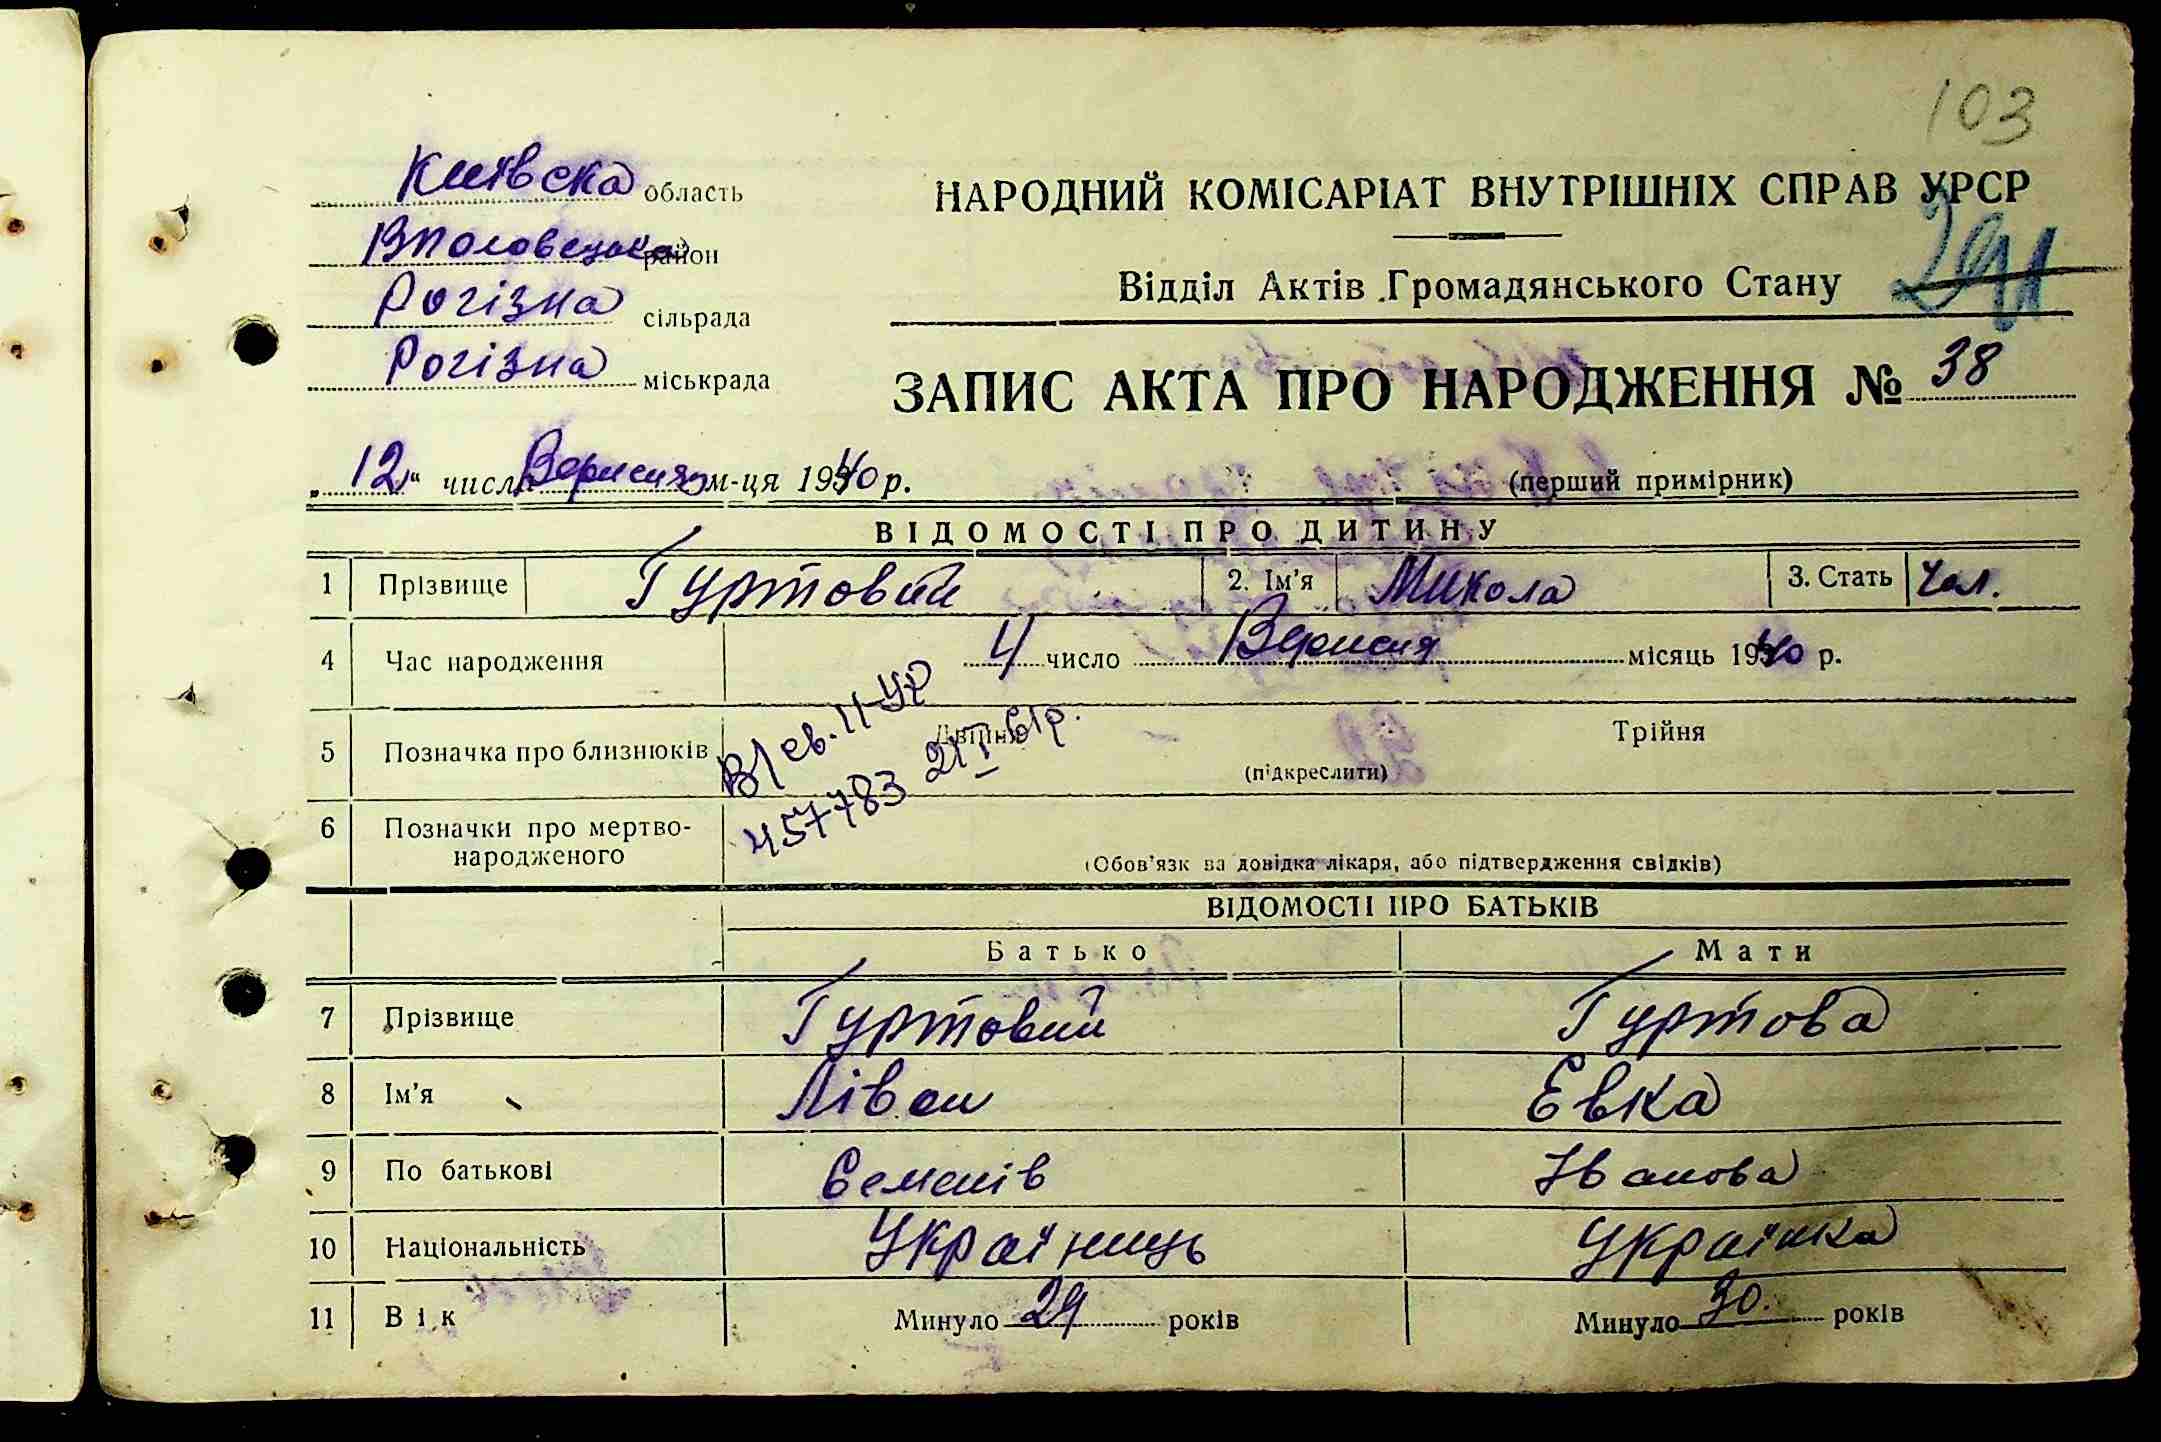 103
Київска область
НАРОДНИЙ КОМІСАРІАТ ВНУТРІШНІХ СПРАВ УРСР
Вполовецька район
Відділ Актів Громадянського Стану
Рогізна сільрада
Рогізна міськрада
ЗАПИС АКТА ПРО НАРОДЖЕННЯ № 38
„12“ числа Вересня м-ця 1940 р.
(перший примірник)
ВІДОМОСТІ ПРО ДИТИНУ
1 Прізвище Гуртовий 2. Ім'я Микола 3. Стать Чол.
4 Час народження 4 число Вересня місяць 1940 р.
5 Позначка про близнюків Двійня Трійня
(підкреслити)
В/св. II-УР
457783 21/I 61р.
6 Позначки про мертво-
народженого
(Обов'язкова довідка лікаря, або підтвердження свідків)
ВІДОМОСТІ ПРО БАТЬКІВ
Батько Мати
7 Прізвище Гуртовий Гуртова
8 Ім'я Ліван Евка
9 По батькові Семенів Іванова
10 Національність Україниць Українка
11 Вік Минуло 29 років Минуло 30. років